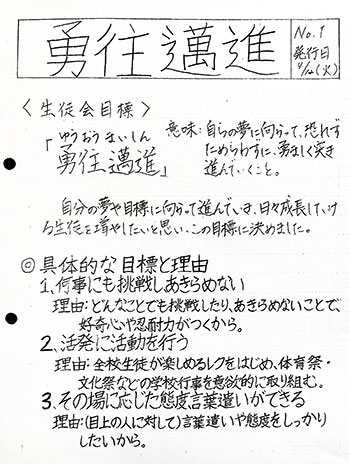 勇往邁進
No.1
発行日
4/12(火)
〈生徒会目標〉
ゆうおうまいしん
「勇往邁進」
意味:自らの夢に向かって、恐れず
ためらわずに、勇ましく突き
進んでいくこと。
自分の夢や目標に向かって進んでいき、日々成長してい
る生徒を増やしたいと思い、この目標に決めました。
◎具体的な目標と理由
1、何事にも挑戦しあきらめない
理由:どんなことでも挑戦したり、あきらめないことで、
好奇心や忍耐力がつくから。
2、活発に活動を行う
理由:全校生徒が楽しめるレクをはじめ、体育祭・
文化祭などの学校行事を意欲的に取り組む。
3、その場に応じた態度言葉遣いができる
理由:(目上の人に対して)言葉遣いや態度をしっかり
したいから。